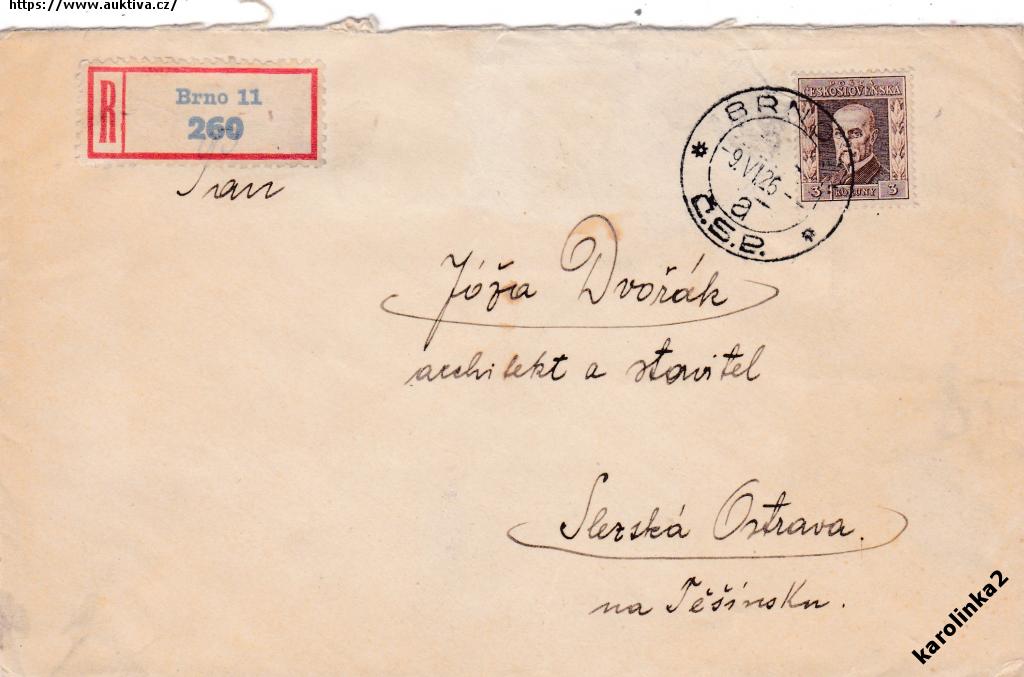 https://www.auktiva.cz/
R
Brno 11
260
Pan
POŠTA
ČESKOSLOVENSKÁ
3 KORUNY 3
BRNO
-9.VI.26-
a
Č.S.P.
Józa Dvořák
architekt a stavitel
Slezská Ostrava.
na Těšínsku.
karolinka2